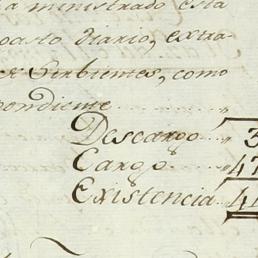 a ministrado esta
gasto diario, extra-
er Serbientes, como
pondiente
Descargo 3
Cargo 47
Existencia 44